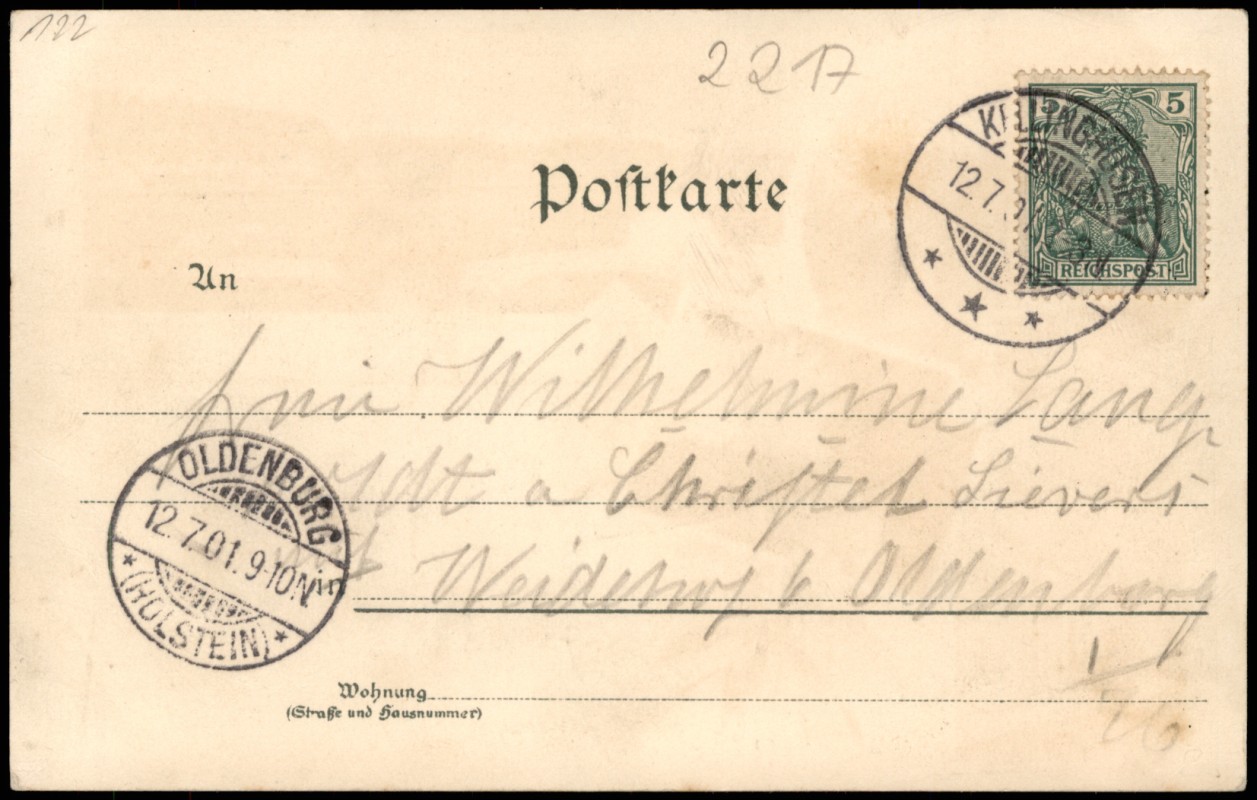 122
2217
5 5
REICHSPOST
KELLINGHUSEN
12.7.
Poſtkarte
An
Wilhelmine Lang
a Chriſtel Sievers
Weidehof b Oldenburg
in
OLDENBURG
12.7.01.9-10N.
(HOLSTEIN)
Wohnung
(Straße und Hausnummer)